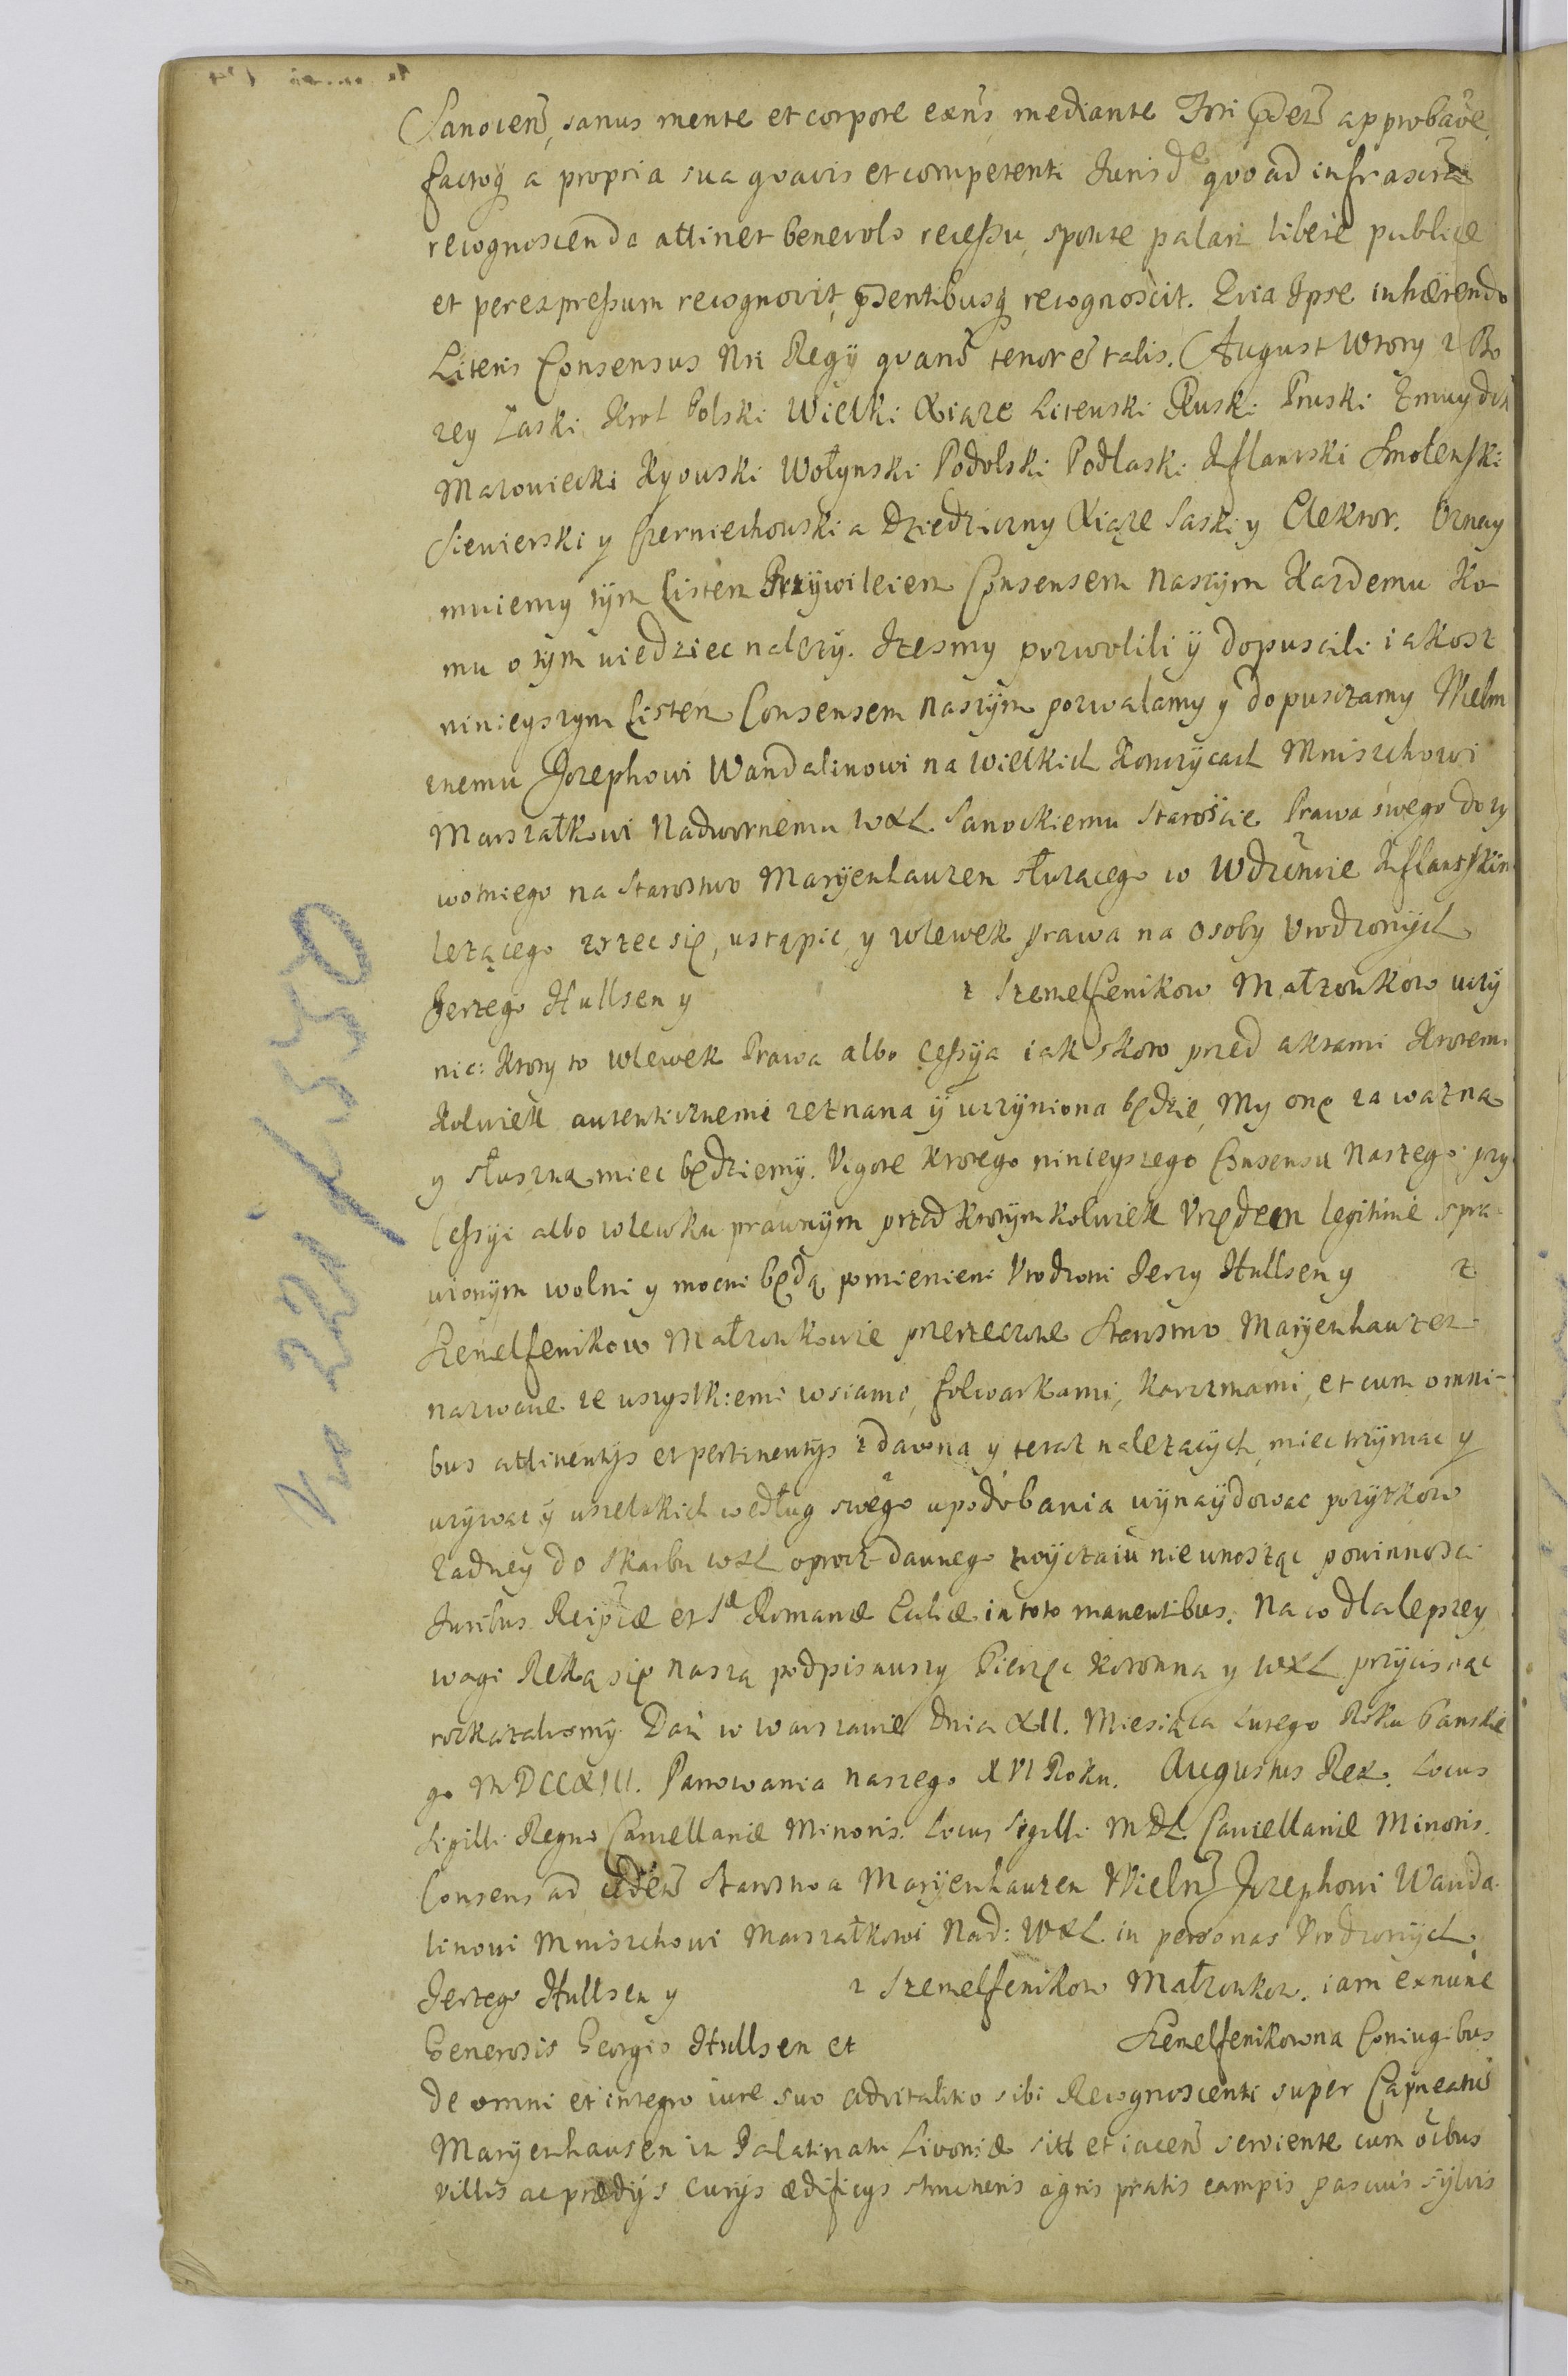 Sanocen, sanus mente et corpore exns mediante Iri pden approbave
factoq a propria sua quavis et competenti Jurisde quoad infrascra
recognoscenda attinet benevolo recessu, sponte palam libere publice
et per expressum recognovit, pdentibusq recognoscit. Quia Ipse inhærendo
Literis Consensus Nri Regij quarū tenor ē talis. August Wtory z Bo
zey Łaski Krol Polski Wielki Xiąze Litewski Ruski Pruski Zmuydzki
Mazowiecki Kyowski Wołynski Podolski Podlaski Inflantski Smolenski
Siewierski y Czerniechowski a Dziedziczny Xiąze Saski y Elektor. Oznay
muiemy tym Listem Przywileiem Consensem naszym Kazdemu Ko
mu o tym wiedziec nalezy. Izesmy pozwolili ÿ dopuscili iakosz
ninieyszym Listem Consensem naszym pozwalamy y dopusczamy Wielm
znemu Jozephowi Wandalinowi na Wielkich Konczycach Mniszchowi
Marszałkowi Nadwornemu WXL. Sanockiemu Staroscie Prawa swego dozy
wotniego na Starostwo Maryenhauzen słuzącego w Wdztwie Inflantskim
lezącego zrzec się, ustąpic, y wlewek prawa na osoby Urodzonych
Jerzego Hullsen y z Szemelfenikow Małzonkow uczy
nic: Ktory to wlewek Prawa albo cessya iak skoro przed aktami Ktoremi
kolwiek autenticznemi zeznana ÿ uczyniona będzie, My onę za wazną
y słuszną miec będziemÿ. Vigore ktorego ninieyszego Consensu Naszego przy
Cessyi albo wlewku prawnym przed ktorymkolwiek Urzędem legitime spra
wionym wolni y mocni będą pomienieni Urodzoni Jerzy Hullsen y z
Szemelfenikow Małzonkowie przerzeczone Starostwo Maryenhauzen
nazwane ze wszystkiemi wsiami, folwarkami, karczmami, et cum omni-
bus attinentijs et pertinentijs zdawna y teraz nalezących, miec trzymac y
uzywac ÿ wszelakich według swego upodobania wynaydowac pozytkow
zadney do Skarbu WXL oprocz dawnego zwyczaiu nie wnosząc powinnosci
Juribus Reipcæ et Sæ Romanæ Eccliæ in toto manentibus. Na co dla lepszey
wagi Ręką się naszą podpisawszy Pieczęc Koronną y WXL przycisnąc
roskazalismy. Dan w Warszawie Dnia XII. Miesiąca Lutego Roku Panskie
go MDCCXIII. Panowania naszego XVI Roku. Augustus Rex. Locus
Sigilli Regni Cancellariæ Minoris. Locus Sigilli MDL. Cancellariæ Minoris.
Consens ad Starostwa Maryenhauzen Wieln Jozephowi Wanda
linowi Mniszchowi Marszałkowi Nad: WXL. in personas Urodzonych
Jerzego Hullsen y z Szemelfenikow Małzonkow. iam exnunc
Generosis Georgio Hullsen et Szemelfenikowna Coniugibus
de omni et integro iure suo advitalitio sibi Recognoscenti super Capneatū
Maryenhausen in Palatinatu Livoniæ sitt et iacen serviente cum oibus
villis ac prædijs curijs ædificijs structuris agris pratis campis pascuis sylvis
No 221/550